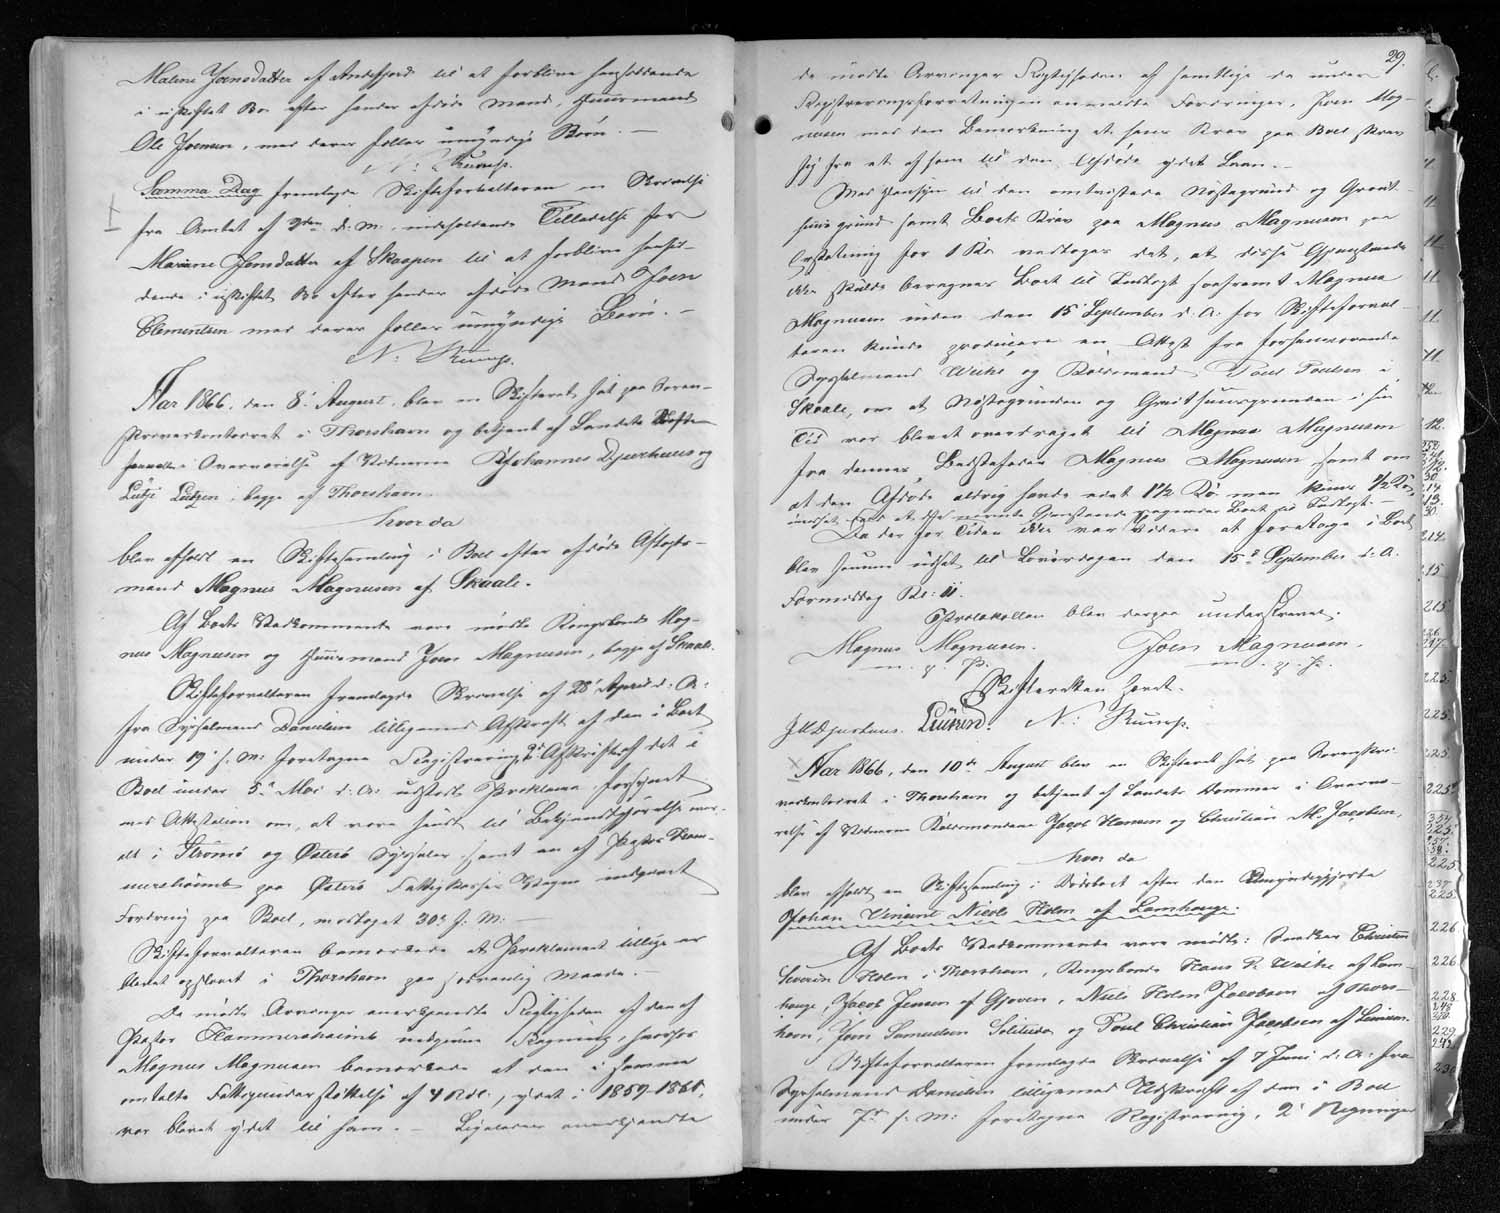 Malene Joensdatter af Andefjord til at forblive hensiddende
i uskiftet Bo efter hendes afdøde Mand, Huusmand
Ole Joensen, med deres fælles umyndige Børn. —
N: Rump.
Samme Dag fremlagde Skifteforvalteren en Skrivelse
fra Amtet af d. M. indeholdende Tilladelse for
Mariane Joensdatter af Skaapen til at forblive hensid-
dende i uskiftet Bo efter hendes afdøde Mand Joen
Clementsen med deres fælles umyndige Børn. —
N: Rump.
Aar 1866, den 8de August, blev en Skifteret sat paa Soren-
skriverkontoret i Thorshavn og betjent af Landets Skifte-
forvalter i Overværelse af Vidnerne Johannes Djurhuus og
Lützen, begge af Thorshavn.
hvor da
blev afholdt en Skiftesamling i Boet efter afdøde Aftægts-
mand Magnus Magnusen af Skaale.
Af Boets Vedkommende vare mødte Kongsbonde Mag-
nus Magnusen og Huusmand Joen Magnusen, begge af Skaale.
Skifteforvalteren fremlagde Skrivelse af 28 April d. A:
fra Sysselmand Danielsen tilligemed Afskrift af den i Boet
under 19 s. M: foretagne Registrering, Afskrift af det i
Boet under 5te Mai d: A: udstedt Proklama, forsynet
med Attestation om, at være læst til Bekjendtgjørelse
i Strømø og Østerø Sysseler samt en af Pastor Ham-
mershaimb paa Østerø Fattigkasses Vegne nedgivet
Fordring paa Boet, modtaget 30te f. M: —
Skifteforvalteren bemærkede at Proklamaet tillige er
blevet opslaaet i Thorshavn paa sædvanlig Maade. —
De mødte Arvinger anerkjendte Rigtigheden af den af
Pastor Hammershaimb indgivne Regning, hvorhos
Magnus Magnusen bemærkede at den i samme
omtalte Fattigunderstøttelse af 4 Rdl., ydet i 1859-1860,
var blevet ydet til ham. — Ligeledes anerkjendte
29.
de mødte Arvinger Rigtigheden af samtlige de under
Registreringsforretningen anmeldte Fordringer, Joen Mag-
nusen med den Bemærkning at hans Krav paa Boet skrev
sig fra et af ham til den Afdøde ydet Laan. —
Med Hensyn til den omtvistede Nøstegrund og Grut-
huusgrund samt Boets Krav paa Magnus Magnusen paa
Erstatning for 1 Ko vedtoges det, at disse Gjenstande
ikke skulde beregnes Boet til Indtægt saafremt Magnus
Magnusen inden den 15 September d. A. for Skifteforval-
teren kunde producere en Attest fra forhenværende
Sysselmand Weihe og Boldsmand Poul Poulsen i
Skaale, om at Nøstegrunden og Gruthuusgrunden i sin
Tid var blevet overdraget til Magnus Magnusen
fra dennes Bedstefader Magnus Magnusen samt om
at den Afdøde aldrig havde eiet 1½ Ko men kun ½ Ko,
Da der for Tiden ikke var videre at foretage i Boet
blev samme udsat til Løverdagen den 15de September d. A.
Formiddag Kl: 11.
Protokollen blev derpaa underskrevet.
Magnus Magnusen. Joen Magnusen.
m. p. P. m. p. P.
Skifteretten hævet.
J H Djurhuus. Lützen. N: Rump.
Aar 1866, den 10de August blev en Skifteret sat paa Sorenskri-
verkontoret i Thorshavn og betjent af Landets Dommer i Overvæ-
relse af Vidnerne Boldsmændene Jacob Hansen og Christian M. Jacobsen,
hvor da
blev afholdt en Skiftesamling i Dødsboet efter den
Johan Vincent Nicols Holm af Lamhauge.
Af Boets Vedkommende vare mødte: Snedker Christen
Severin Holm i Thorshavn, Kongsbonde Hans P. Weihe af Lam-
hauge, Jacob Jensen af Gjoven, Niels Holm Jacobsen af Thors-
havn, Joen Samuelsen Solitude og Poul Christian Jacobsen af
Skifteforvalteren fremlagde Skrivelse af 7 Juni d. A: fra
Sysselmand Danielsen tilligemed Udskrift af den i Boet
under 7de s. M: foretagne Registrering, 2 Regninger